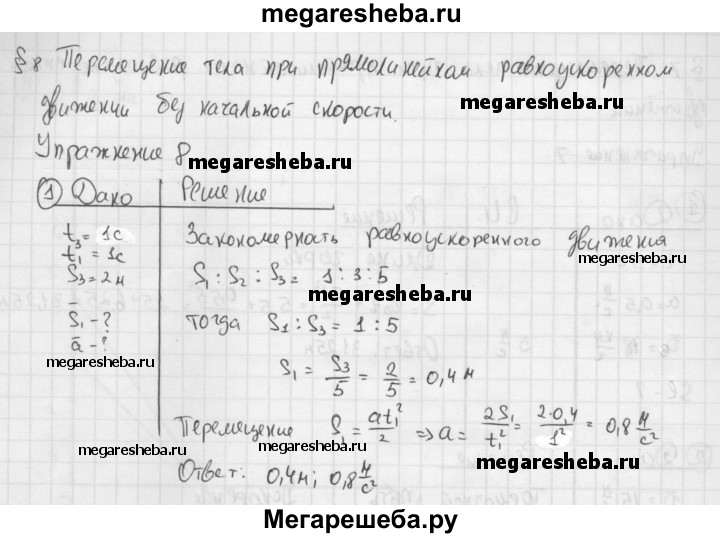 megaresheba.ru
§ 8 Перемещение тела при прямолинейном равноускоренном
движении без начальной скорости.
megaresheba.ru
Упражнение 8
megaresheba.ru
1 Дано Решение
t₃ = 1с
t₁ = 1с
S₃ = 2м
S₁ - ?
a - ?
megaresheba.ru
Закономерность равноускоренного движения
megaresheba.ru
S₁ : S₂ : S₃ = 1 : 3 : 5
megaresheba.ru
тогда S₁ : S₃ = 1 : 5
S₁ = S₃/5 = 2/5 = 0,4 м
Перемещение S₁ = at₁²/2 => a = 2S₁/t₁² = 2·0,4/1² = 0,8 м/с²
megaresheba.ru
megaresheba.ru
Ответ: 0,4м; 0,8 м/с²
megaresheba.ru
megaresheba.ru
Мегарешеба.ру